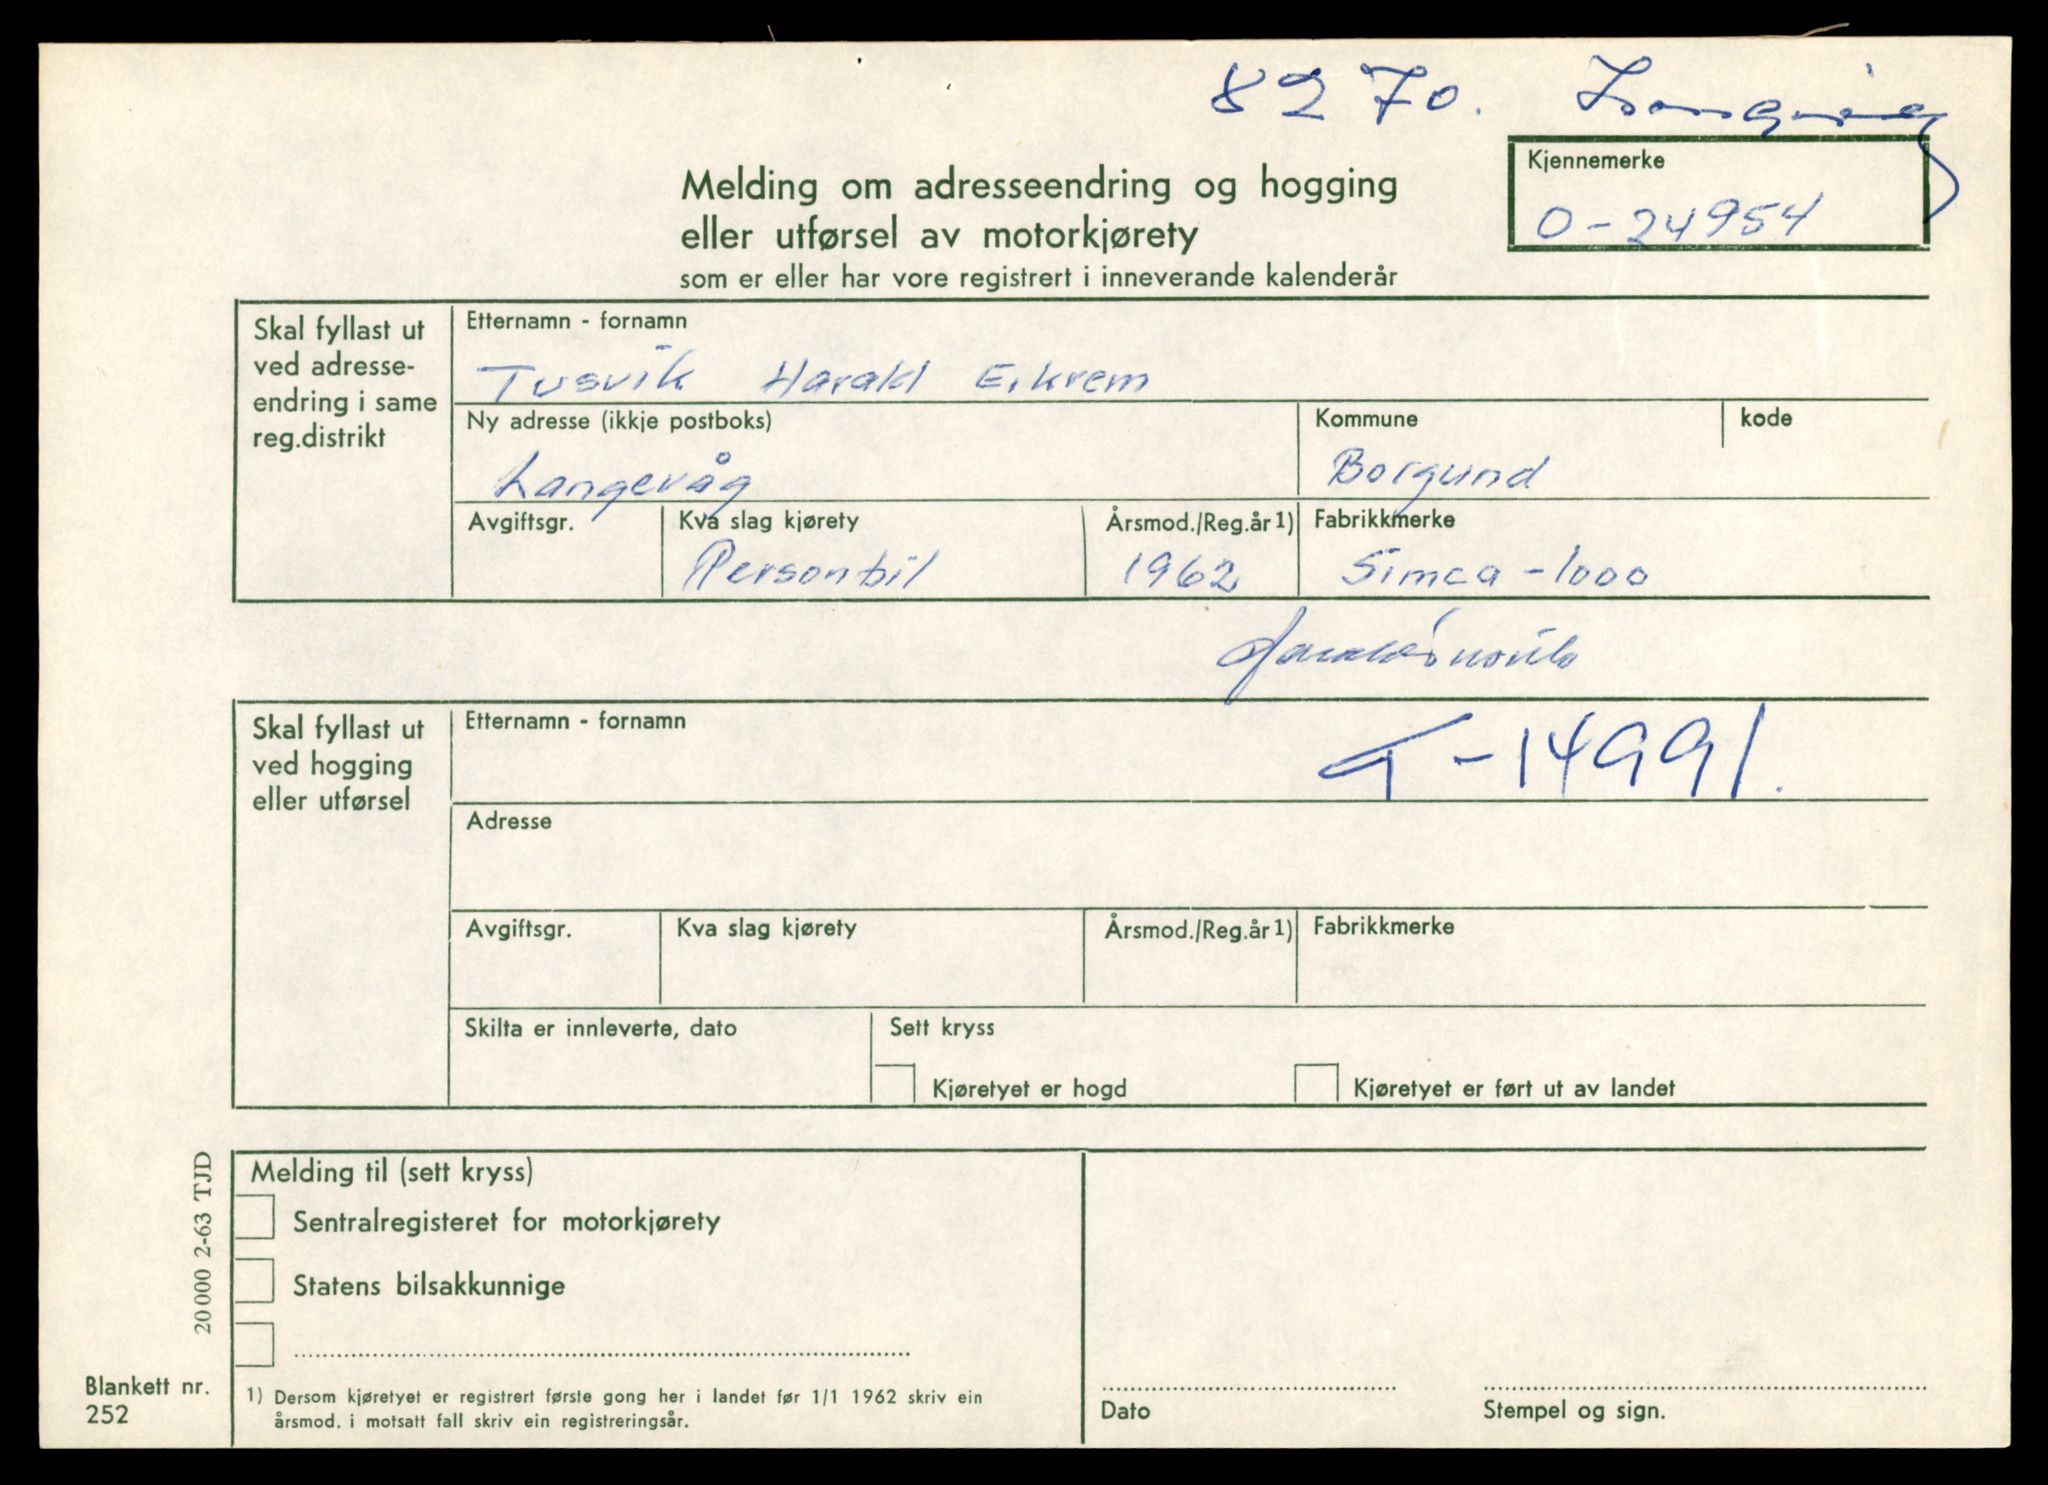 8270. Langevåg
Melding om adresseendring og hogging
eller utførsel av motorkjørety
som er eller har vore registrert i inneverande kalenderår
Kjennemerke
O-24954
Skal fyllast ut
ved adresse-
endring i same
reg.distrikt
Etternamn - fornamn
Tusvik Harald Eikrem
Ny adresse (ikkje postboks)
Langevåg
Kommune
Borgund
kode
Avgiftsgr.
Kva slag kjørety
Personbil
Årsmod./Reg.år 1)
1962
Fabrikkmerke
Simca-1000
T-14991.
Skal fyllast ut
ved hogging
eller utførsel
Etternamn - fornamn
Adresse
Avgiftsgr.
Kva slag kjørety
Årsmod./Reg.år 1)
Fabrikkmerke
Skilta er innleverte, dato
Sett kryss
Kjøretyet er hogd
Kjøretyet er ført ut av landet
Melding til (sett kryss)
Sentralregisteret for motorkjørety
Statens bilsakkunnige
1) Dersom kjøretyet er registrert første gong her i landet før 1/1 1962 skriv ein
årsmod. i motsatt fall skriv ein registreringsår.
Dato
Stempel og sign.
20 000 2-63 TJD
Blankett nr.
252